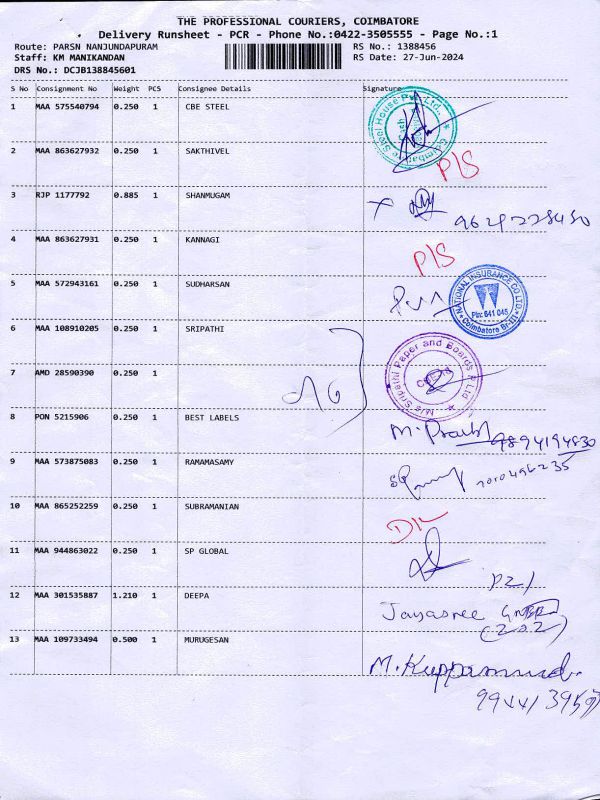 THE PROFESSIONAL COURIERS, COIMBATORE
Delivery Runsheet - PCR - Phone No.:0422-3505555 - Page No.:1
Route: PARSN NANJUNDAPURAM RS No.: 1388456
Staff: KM MANIKANDAN RS Date: 27-Jun-2024
DRS No.: DCJB138845601
S No Consignment No Weight PCS Consignee Details Signature
1 MAA 575540794 0.250 1 CBE STEEL
2 MAA 863627932 0.250 1 SAKTHIVEL P/S
3 RJP 1177792 0.885 1 SHANMUGAM
4 MAA 863627931 0.250 1 KANNAGI P/S
5 MAA 572943161 0.250 1 SUDHARSAN
NATIONAL INSURANCE CO LTD.
Pin: 641 045
Coimbatore
6 MAA 108910205 0.250 1 SRIPATHI
M/s Sripathi Paper and Boards P Ltd
7 AMD 28590390 0.250 1
8 PON 5215906 0.250 1 BEST LABELS
9894194830
9 MAA 573875083 0.250 1 RAMAMASAMY
10 MAA 865252259 0.250 1 SUBRAMANIAN
11 MAA 944863022 0.250 1 SP GLOBAL
12 MAA 301535887 1.210 1 DEEPA Jayasree
(202)
13 MAA 109733494 0.500 1 MURUGESAN